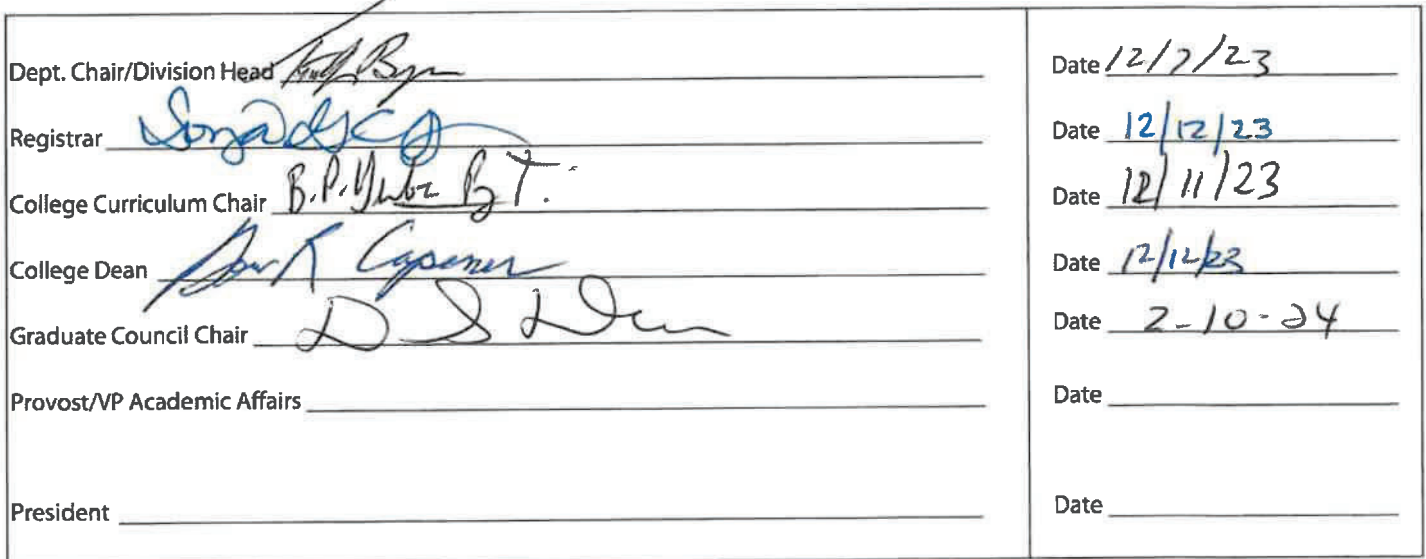 Dept. Chair/Division Head Date 12/7/23
Registrar Date 12/12/23
College Curriculum Chair B.P. By T. Date 12/11/23
College Dean Capener Date 12/12/23
Graduate Council Chair D S Date 2-10-24
Provost/VP Academic Affairs Date
President Date